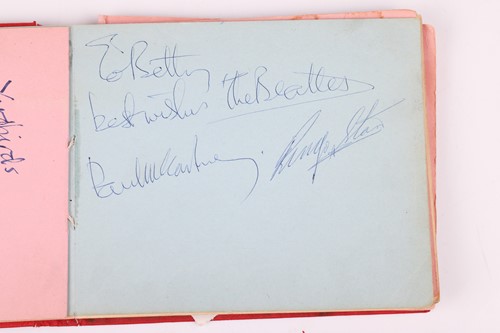 To Betty
best wishes The Beatles
Paul McCartney. Ringo Starr